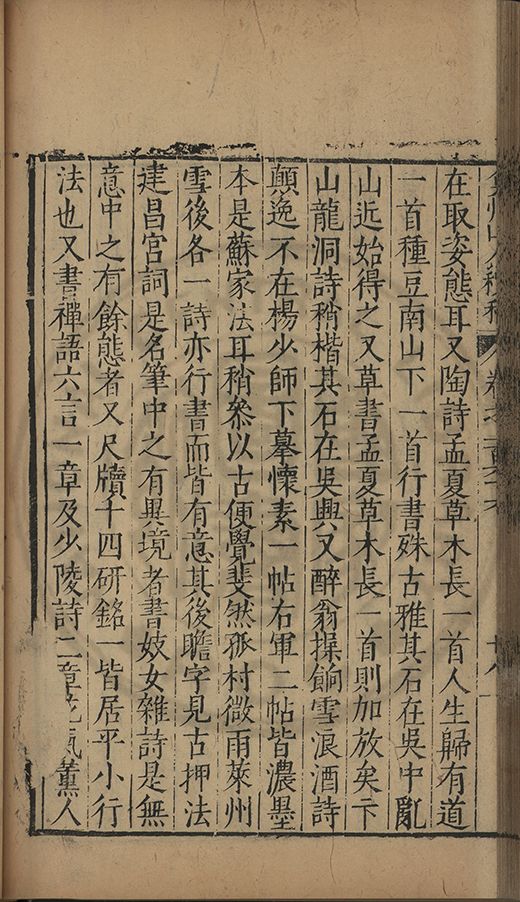 弇州山人續稿 卷之 廿八
在取姿態耳又陶詩孟夏草木長一首人生歸有道
一首種豆南山下一首行書殊古雅其石在吳中亂
山近始得之又草書孟夏草木長一首則加放矣卞
山龍洞詩稍楷其石在吳興又醉翁操餉雪浪酒詩
顛逸不在楊少師下摹懷素一帖右軍二帖皆濃墨
本是蘇家法耳稍叅以古便覺斐然孤村微雨萊州
雪後各一詩亦行書而皆有意其後瞻字見古押法
建昌宮詞是名筆中之有異境者書妓女雜詩是無
意中之有餘態者又尺牘十四研銘一皆居平小行
法也又書禪語六言一章及少陵詩二章花氣薰人